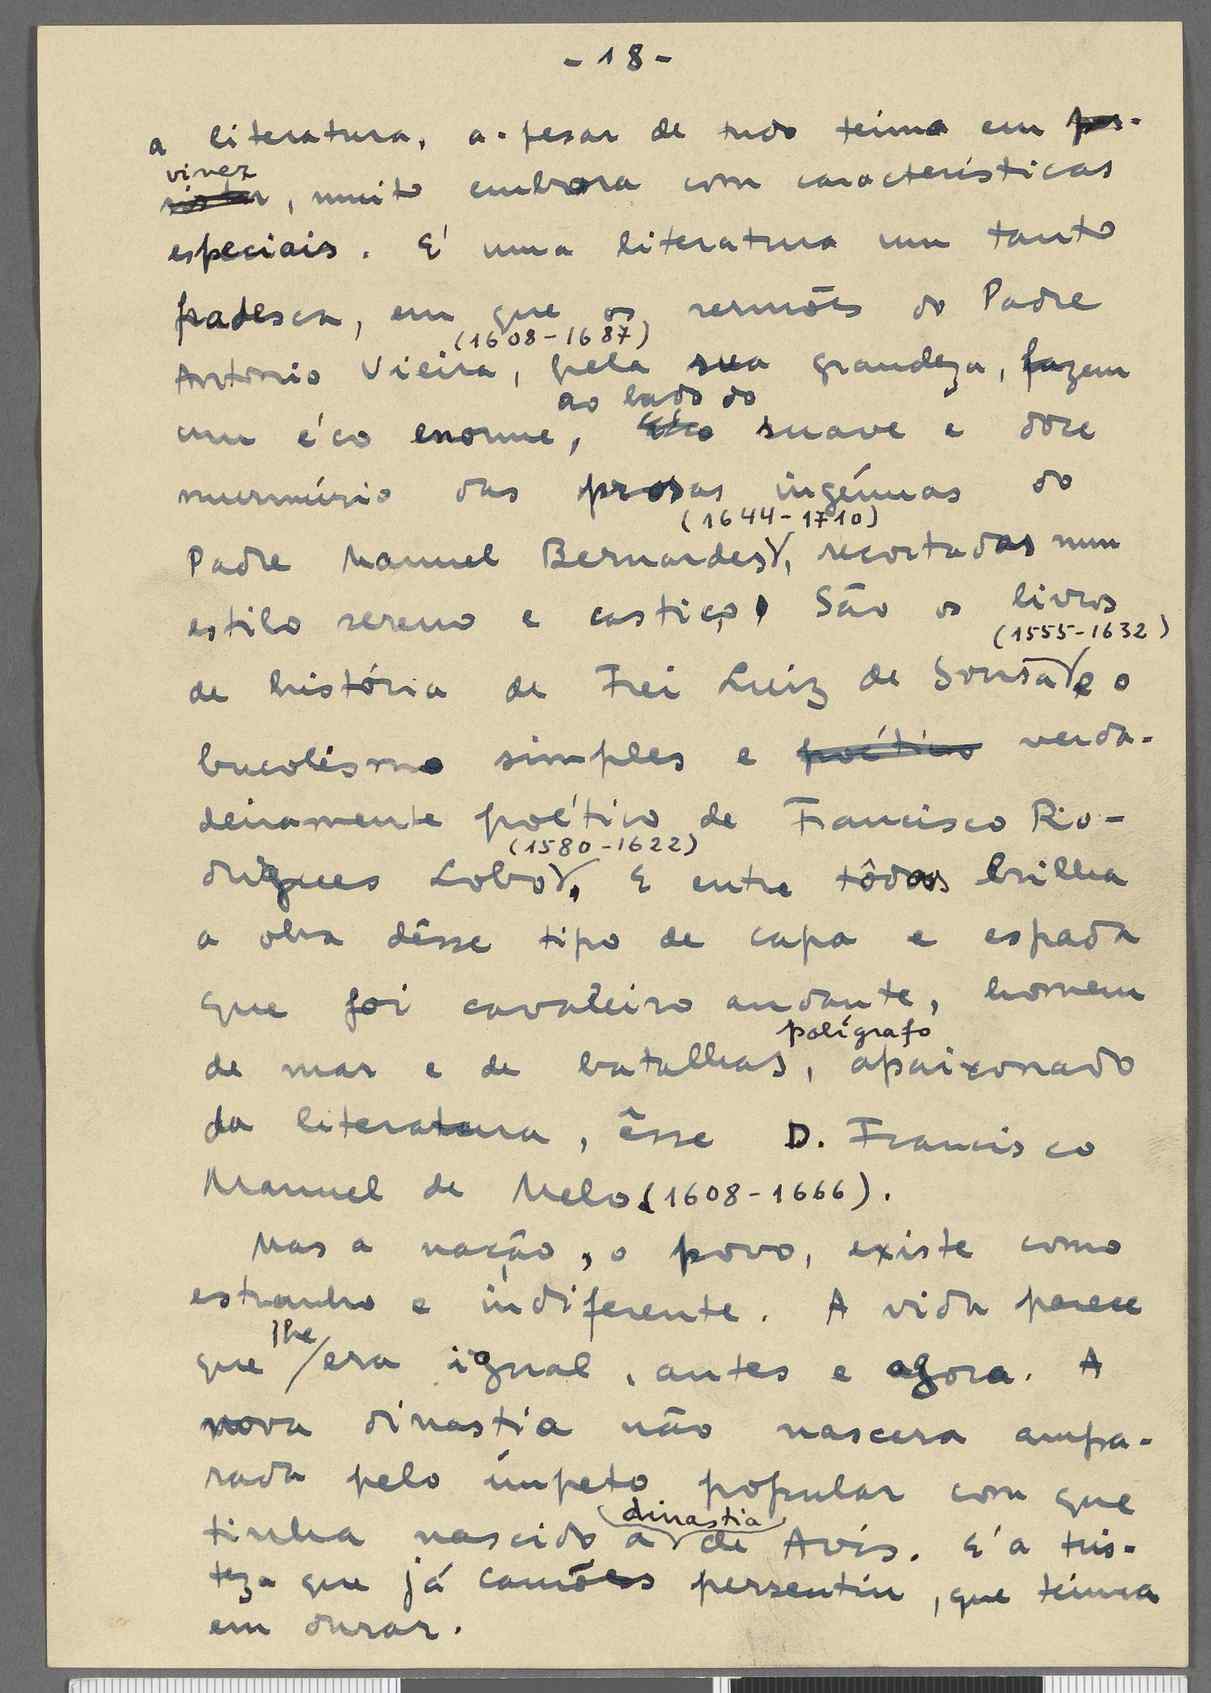 - 18 -
a literatura, a-pesar de tudo teima em per-
viver
sistir, muito embora com características
especiais. É uma literatura um tanto
fradesca, em que os sermões do Padre
(1608-1687)
António Vieira, pela sua grandeza, fazem
ao lado do
um éco enorme, suave e doce
murmúrio das prosas ingénuas do
(1644-1710)
Padre Manuel Bernardes, recortadas num
estilo sereno e castiço. São os livros
(1555-1632)
de história de Frei Luiz de Sousa e o
bucolismo simples e poético verda-
deiramente poético de Francisco Ro-
(1580-1622)
drigues Lobo. E entre todas brilha
a obra dêsse tipo de capa e espada
que foi cavaleiro andante, homem
polígrafo
de mar e de batalhas, apaixonado
da literatura, êsse D. Francisco
Manuel de Melo (1608-1666).
Mas a nação, o povo, existe como
estranho e indiferente. A vida parece
lhe
que / era igual, antes e agora. A
nova dinastia não nascera ampa-
rada pelo ímpeto popular com que
dinastia
tinha nascido a de Avis. É a tris-
teza que já Camões persentiu, que teima
em durar.